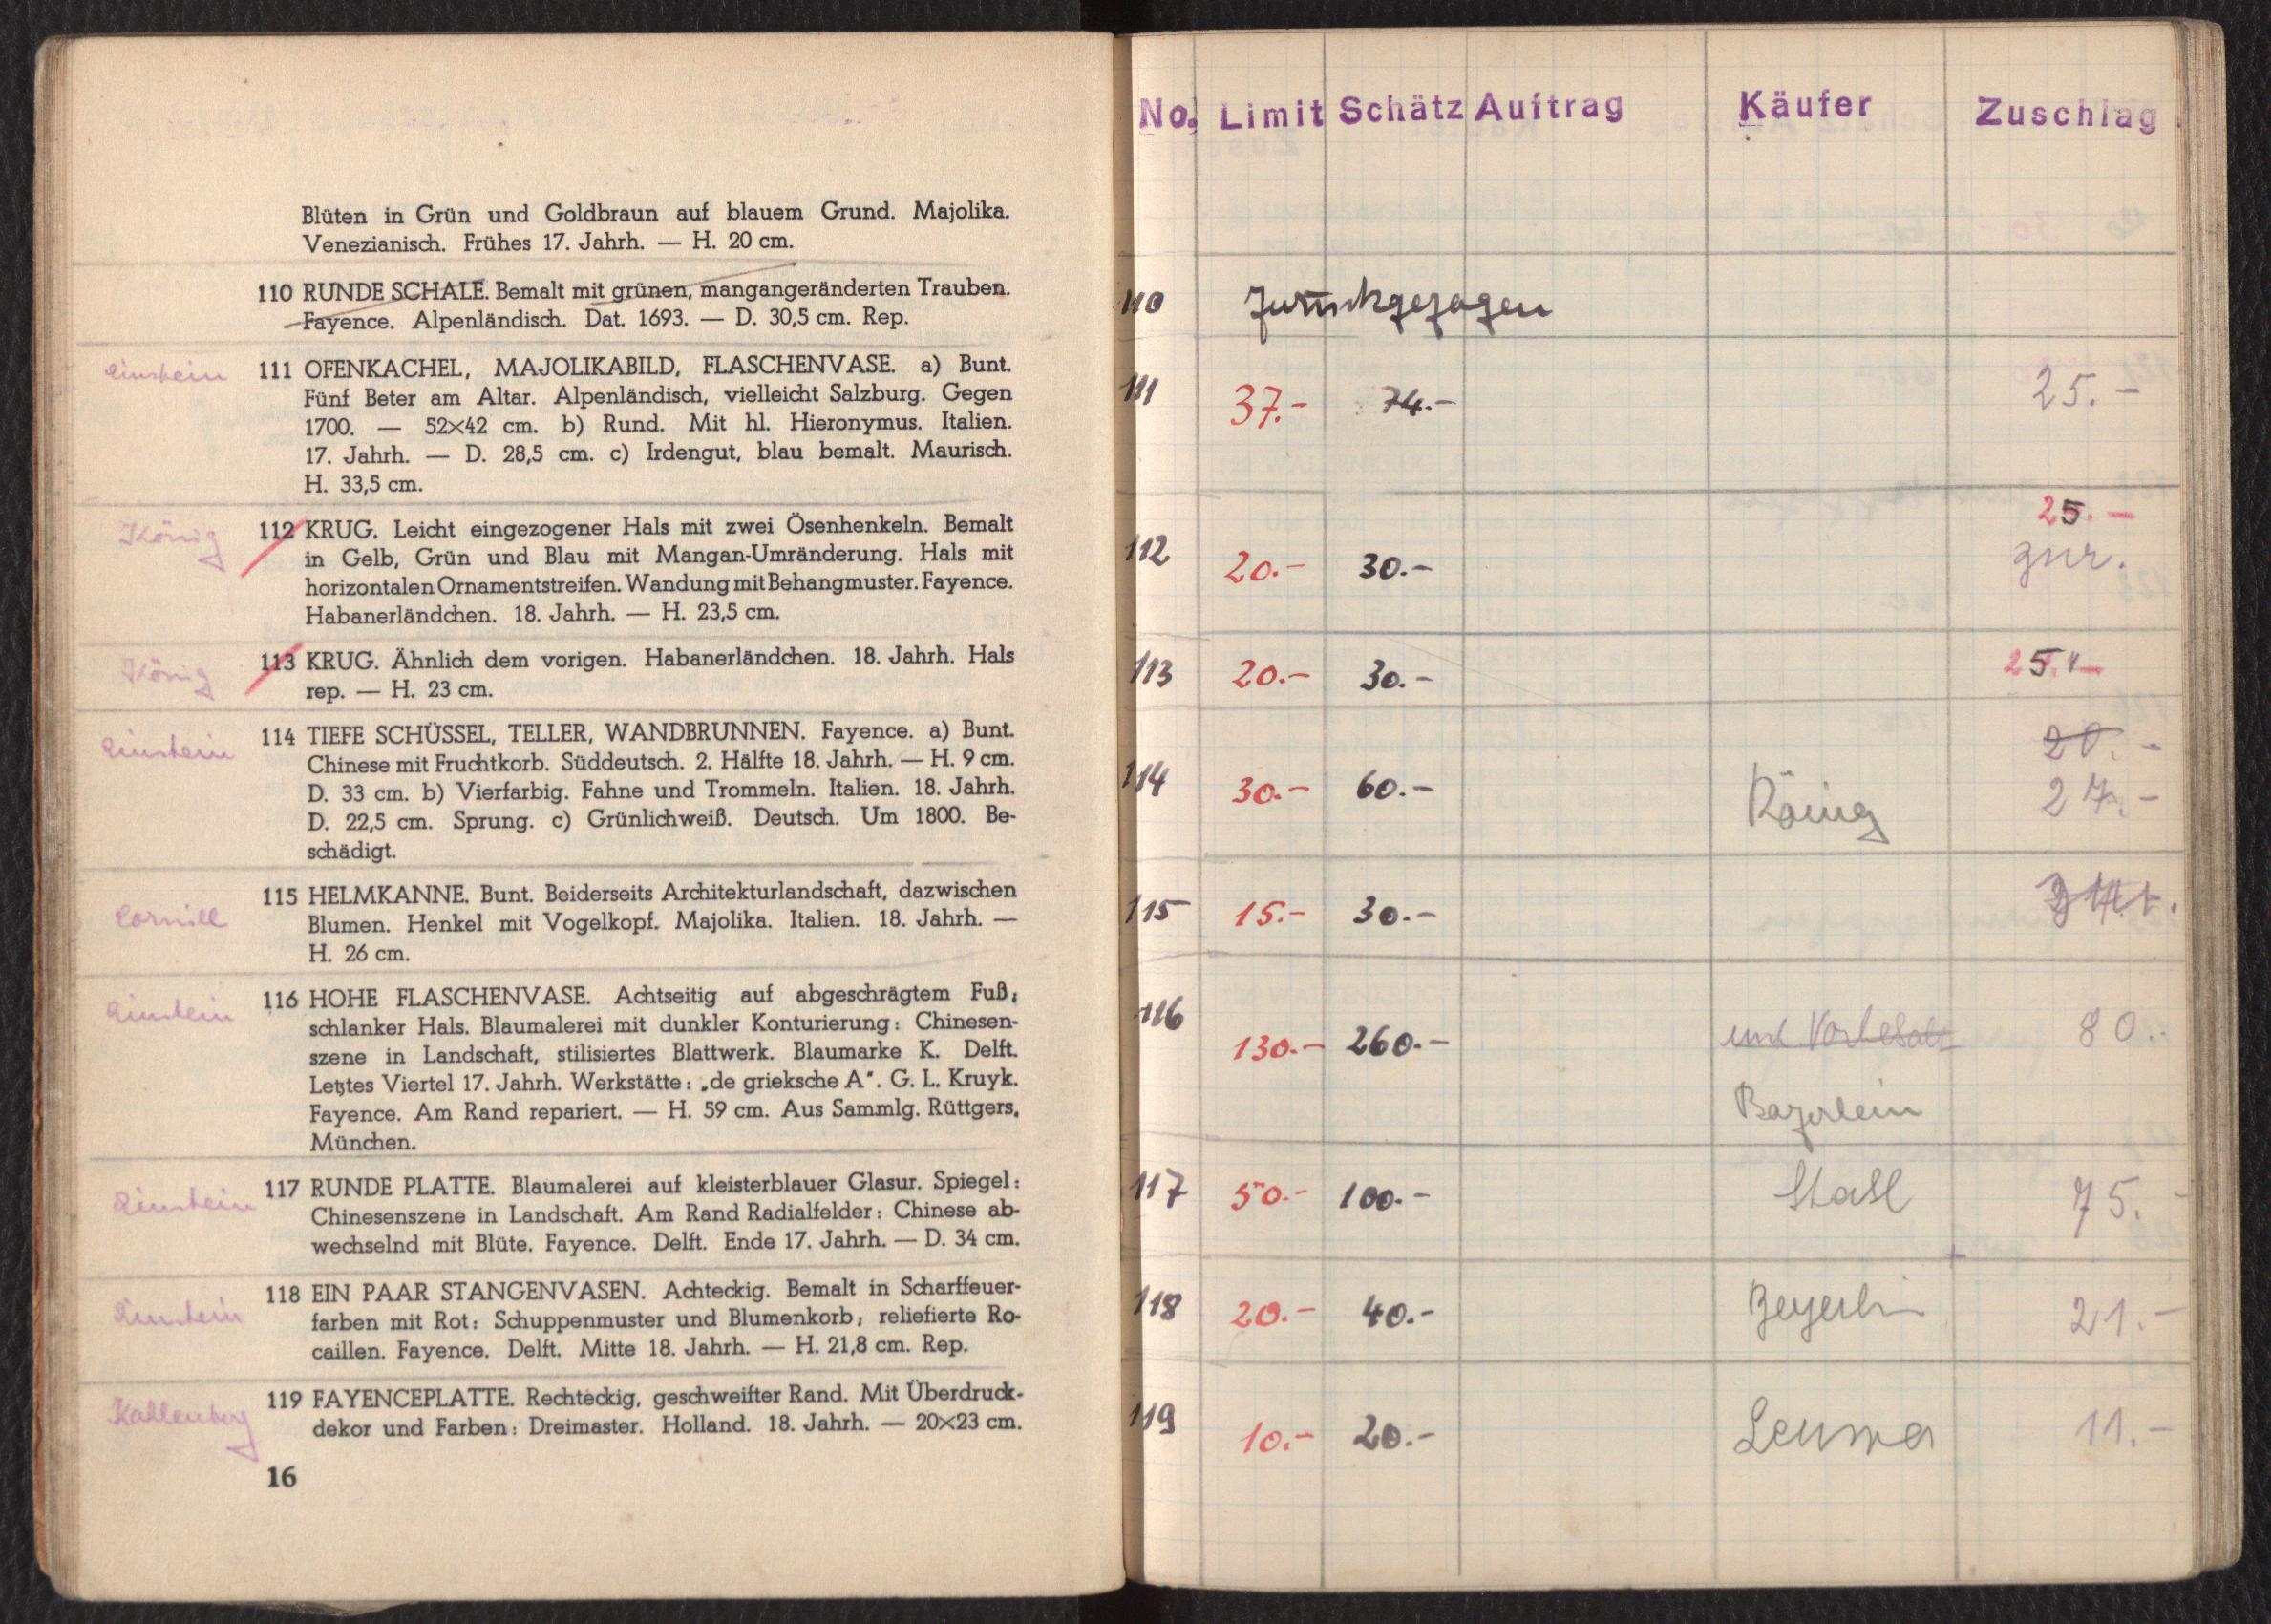 Blüten in Grün und Goldbraun auf blauem Grund. Majolika.
Venezianisch. Frühes 17. Jahrh. — H. 20 cm.
110 RUNDE SCHALE. Bemalt mit grünen, mangangeränderten Trauben.
Fayence. Alpenländisch. Dat. 1693. — D. 30,5 cm. Rep.
Einstein 111 OFENKACHEL, MAJOLIKABILD, FLASCHENVASE. a) Bunt.
Fünf Beter am Altar. Alpenländisch, vielleicht Salzburg. Gegen
1700. — 52×42 cm. b) Rund. Mit hl. Hieronymus. Italien.
17. Jahrh. — D. 28,5 cm. c) Irdengut, blau bemalt. Maurisch.
H. 33,5 cm.
König 112 KRUG. Leicht eingezogener Hals mit zwei Ösenhenkeln. Bemalt
in Gelb, Grün und Blau mit Mangan-Umränderung. Hals mit
horizontalen Ornamentstreifen. Wandung mit Behangmuster. Fayence.
Habanerländchen. 18. Jahrh. — H. 23,5 cm.
König 113 KRUG. Ähnlich dem vorigen. Habanerländchen. 18. Jahrh. Hals
rep. — H. 23 cm.
Einstein 114 TIEFE SCHÜSSEL, TELLER, WANDBRUNNEN. Fayence. a) Bunt.
Chinese mit Fruchtkorb. Süddeutsch. 2. Hälfte 18. Jahrh. — H. 9 cm.
D. 33 cm. b) Vierfarbig. Fahne und Trommeln. Italien. 18. Jahrh.
D. 22,5 cm. Sprung. c) Grünlichweiß. Deutsch. Um 1800. Be-
schädigt.
Cornill 115 HELMKANNE. Bunt. Beiderseits Architekturlandschaft, dazwischen
Blumen. Henkel mit Vogelkopf. Majolika. Italien. 18. Jahrh. —
H. 26 cm.
Einstein 116 HOHE FLASCHENVASE. Achtseitig auf abgeschrägtem Fuß;
schlanker Hals. Blaumalerei mit dunkler Konturierung: Chinesen-
szene in Landschaft, stilisiertes Blattwerk. Blaumarke K. Delft.
Letztes Viertel 17. Jahrh. Werkstätte: „de grieksche A“. G. L. Kruyk.
Fayence. Am Rand repariert. — H. 59 cm. Aus Sammlg. Rüttgers,
München.
Einstein 117 RUNDE PLATTE. Blaumalerei auf kleisterblauer Glasur. Spiegel:
Chinesenszene in Landschaft. Am Rand Radialfelder: Chinese ab-
wechselnd mit Blüte. Fayence. Delft. Ende 17. Jahrh. — D. 34 cm.
Einstein 118 EIN PAAR STANGENVASEN. Achteckig. Bemalt in Scharffeuer-
farben mit Rot: Schuppenmuster und Blumenkorb; reliefierte Ro-
caillen. Fayence. Delft. Mitte 18. Jahrh. — H. 21,8 cm. Rep.
Kallenberg 119 FAYENCEPLATTE. Rechteckig, geschweifter Rand. Mit Überdruck-
dekor und Farben: Dreimaster. Holland. 18. Jahrh. — 20×23 cm.
16
No. Limit Schätz Auftrag Käufer Zuschlag
110 Zurückgezogen
111 37.- 74.- 25.-
25.-
112 20.- 30.- zur.
113 20.- 30.- 25.-
20.-
114 30.- 60.- König 27.-
115 15.- 30.-
116 130.- 260.- 80.-
117 50.- 100.- Stahl 75.-
118 20.- 40.- 21.-
119 10.- 20.- 11.-